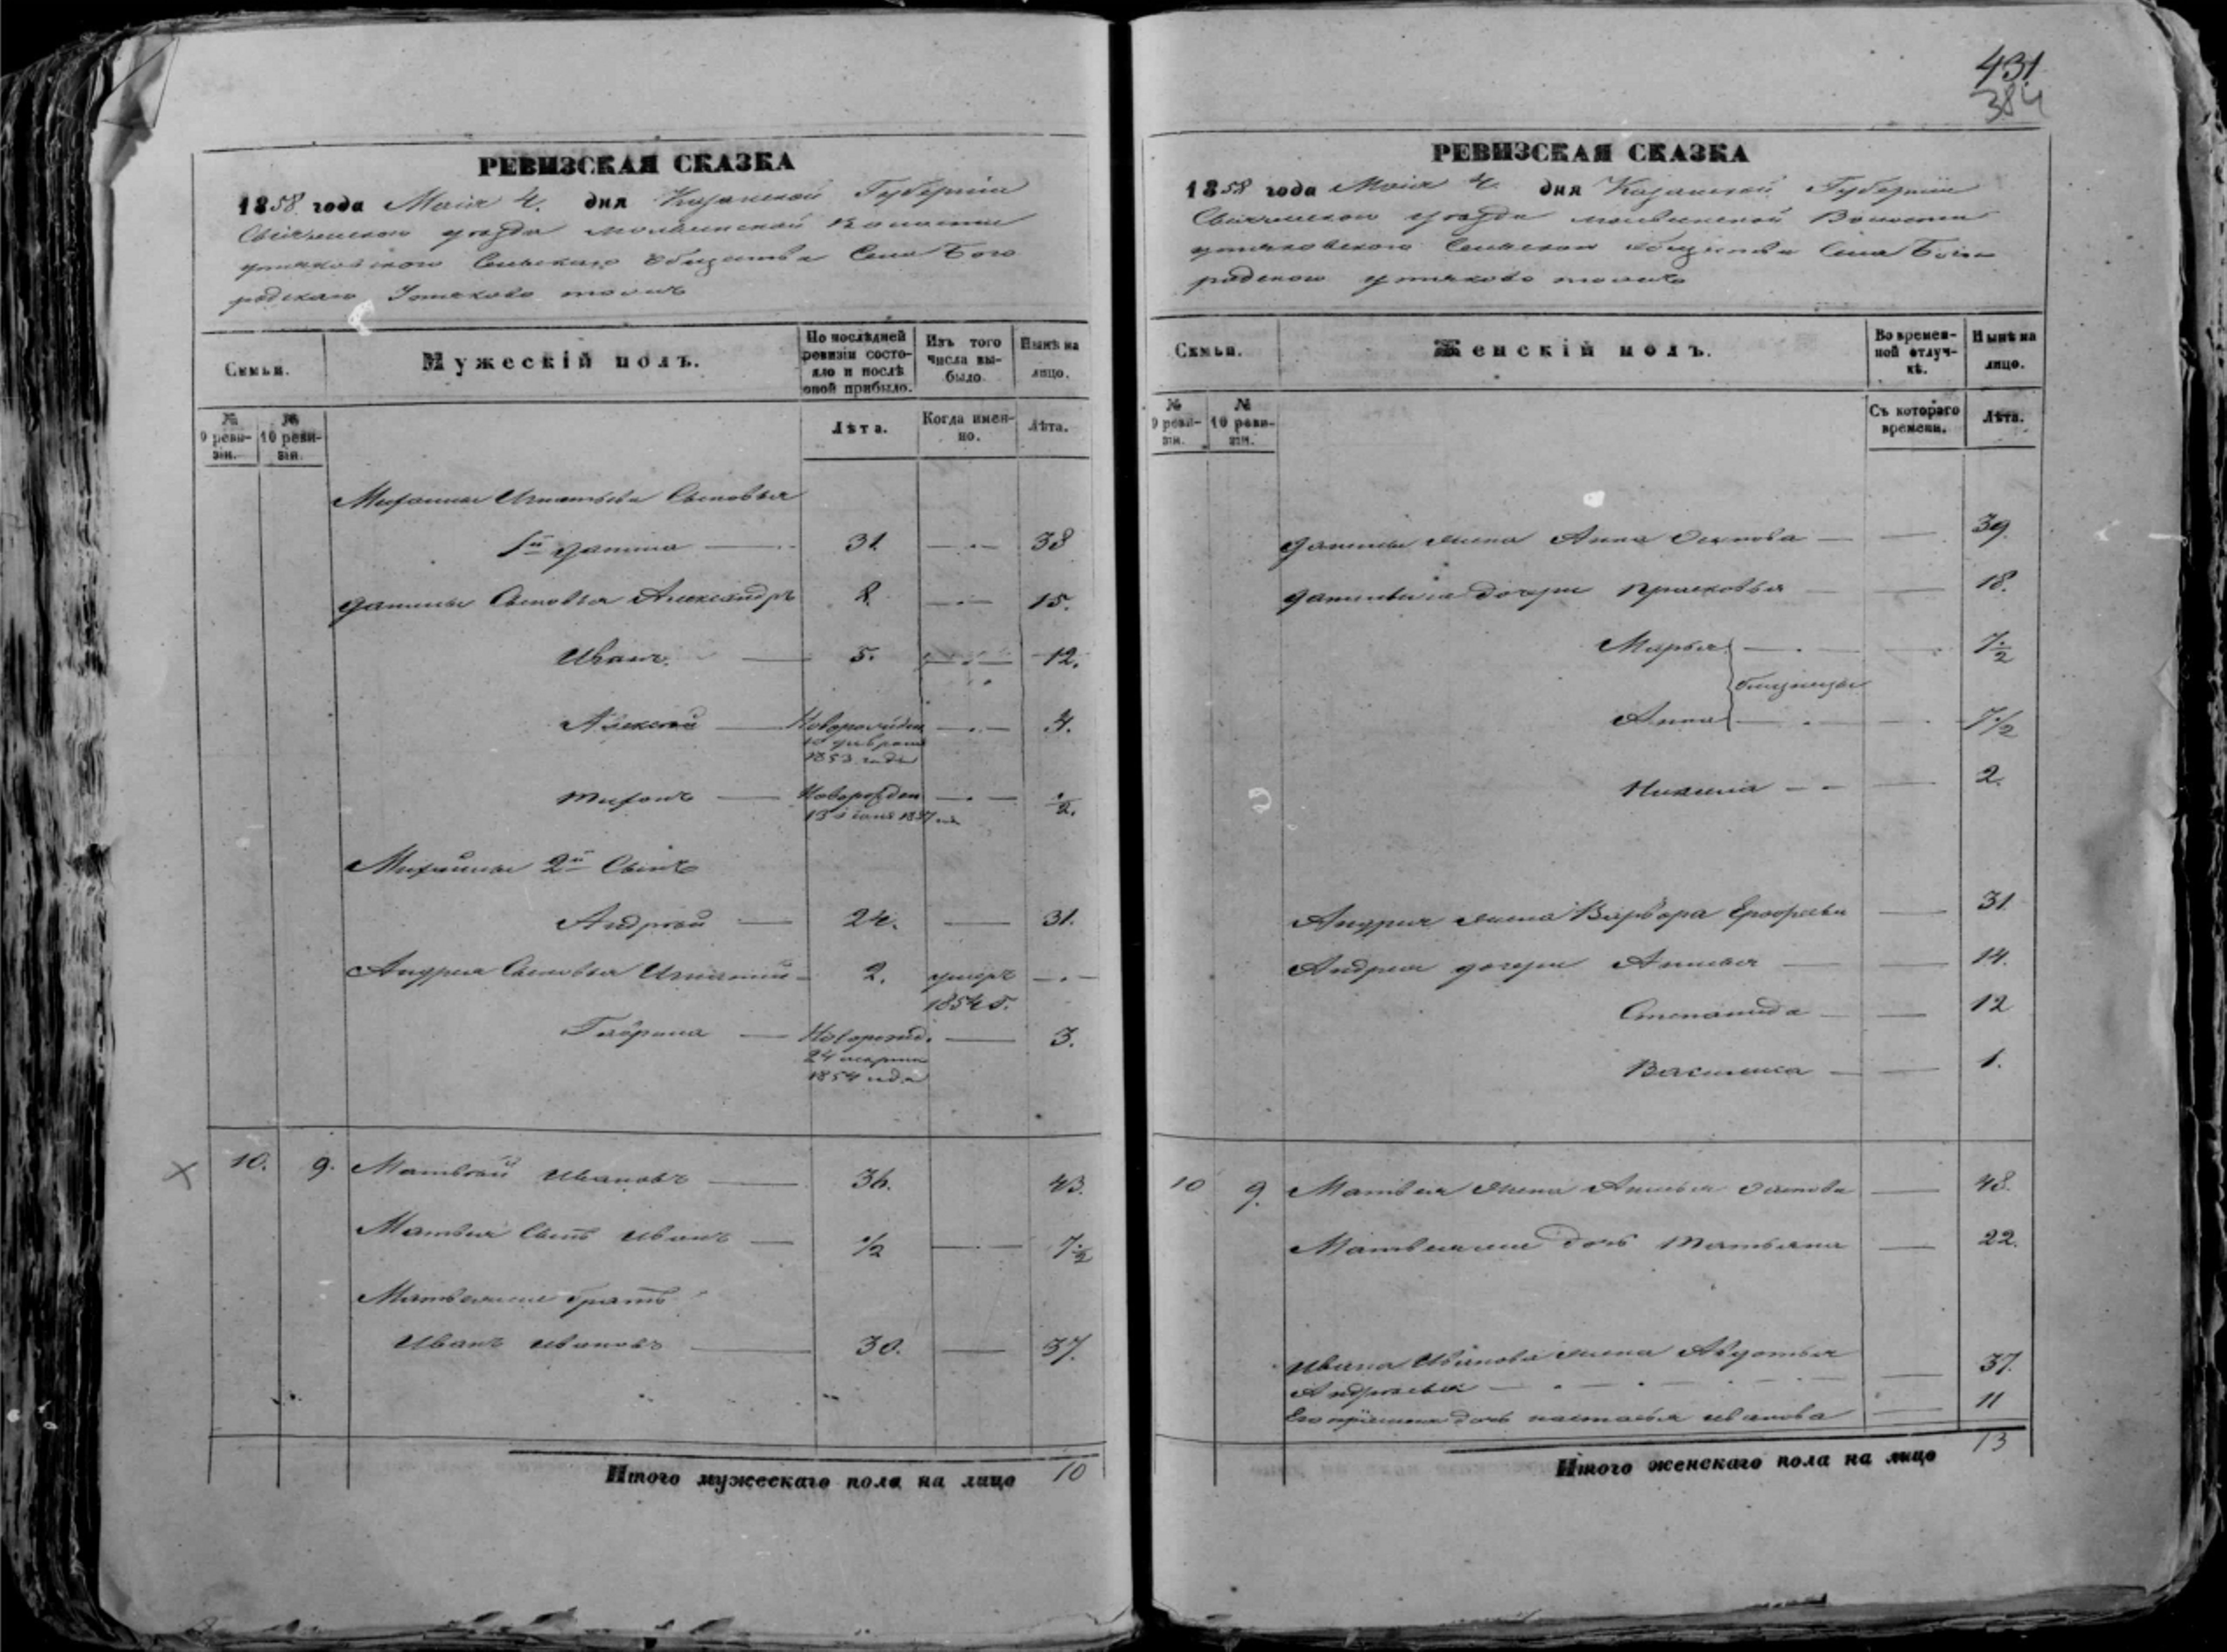 431
384
РЕВИЗСКАЯ СКАЗКА
1858 года Маія 4. дня Казанской Губерніи
уезда Волости
Сельскаго общества Села Бого
родскаго Утяково тожъ
Семьи.
Мужескій полъ.
По послѣдней ревизіи состояло и послѣ оной прибыло.
Изъ того числа выбыло.
Нынѣ на лицо.
№ 9 ревизіи.
№ 10 ревизіи.
Лѣта.
Когда именно.
Лѣта.
Михайлы Игнатьева Сыновья
1й Данила 31 38
Данилы Сыновья Александръ 8. 15.
Иванъ. 5. 12.
Алексей Новорожден 4.
1853 года
Тихонъ Новорожден ½.
13 1857
Михайлы 2й Сынъ
Андрей 24. 31.
Андрея Сыновья Игнатий 2. умеръ
1854 г.
Гаврила Новорожд. 3.
24 марта
1854 года
10. 9. Матвей Ивановъ 36. 43.
Матвея Сынъ Иванъ ½ 7½
Матвея братъ
Иванъ Ивановъ 30. 37.
Итого мужескаго пола на лицо 10
РЕВИЗСКАЯ СКАЗКА
1858 года Маія 4. дня Казанской Губерніи
уезда Волости
Сельскаго общества Села Бого
родскаго Утяково тожъ
Семьи.
Женскій полъ.
Во временной отлучкѣ.
Нынѣ на лицо.
№ 9 ревизіи.
№ 10 ревизіи.
Съ котораго времени.
Лѣта.
Данилы жена Анна Осипова 39.
Данилы дочери Прасковья 18.
Марья 7½
близнецы
Анна 7½
2.
Андрея жена Варвара Ерофеева 31
Андрея дочери 14.
Степанида 12
Василиса 1.
10 9. Матвея жена Осипова 48.
дочь Татьяна 22.
Ивана Иванова жена Авдотья 37.
Андреева
Его дочь Настасья Иванова 11
Итого женскаго пола на лицо 13